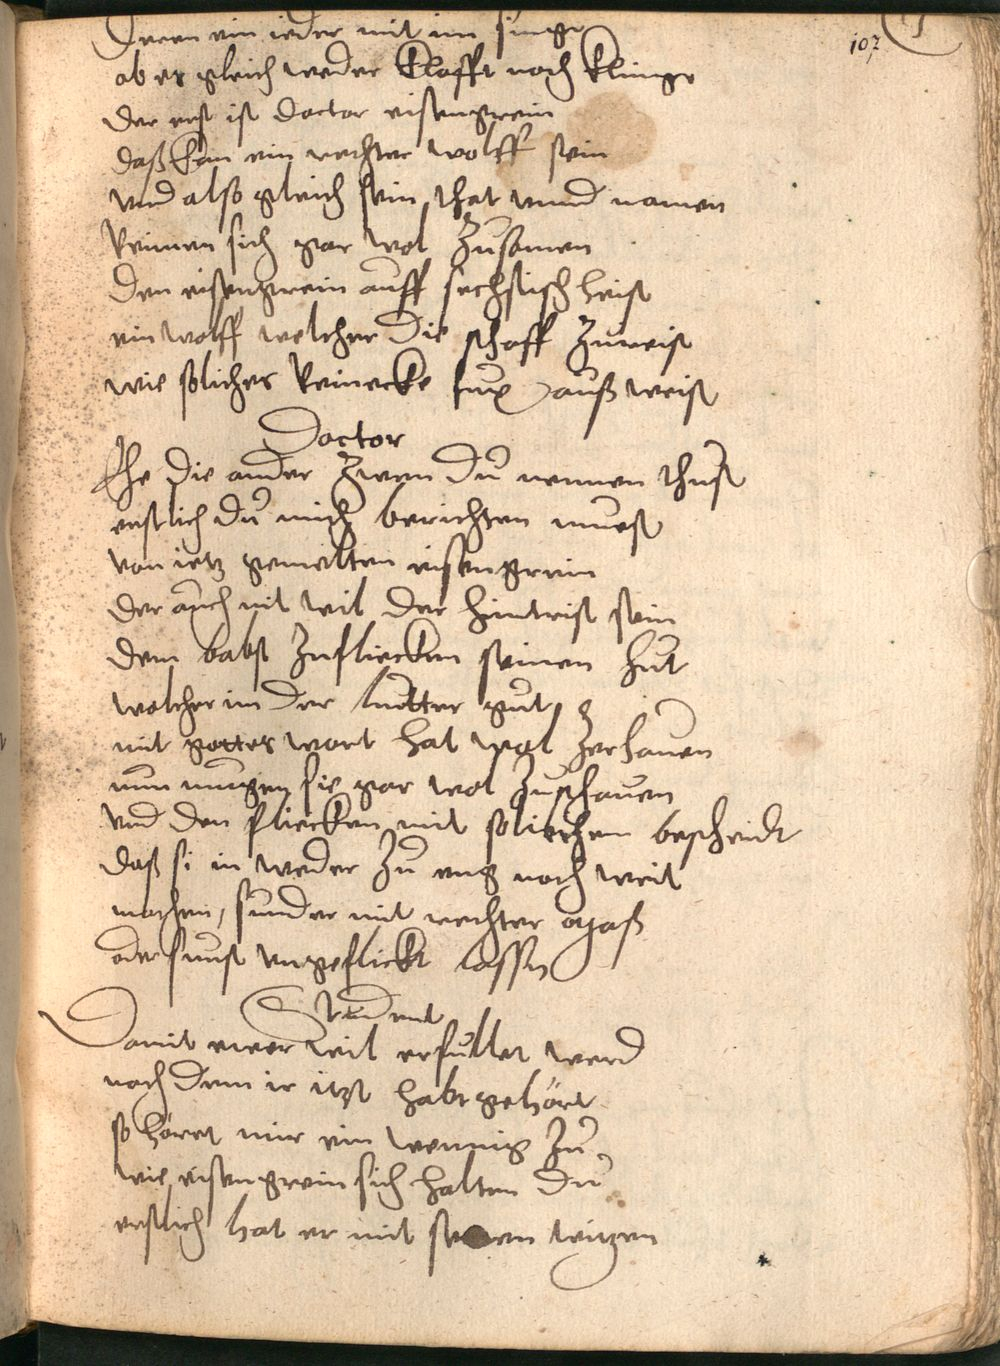 107
Deren ein ieder mit im singe
ob es gleich weder klafft noch klinge
der erst ist doctor eisengrein
daß kan ein rechter wolff sein
vnd also gleich sein that vnnd namen
keimen sich gar wol zusamen
den eisengrein auff sechsisch heist
ein wolff welcher die schaff zureist
wie soliches Reinecke fux außweist
Doctor
Ehe die ander zwen du nennen thust
erstlich du mich berichten muest
von ietz gemelten eisengrein
der auch nit wil der hinterist sein
dem babst zuflicken seinen hut
welcher im der lutter gut
mit gottes wort hat wol zerhauen
nun mugen sie gar wol zuschauen
vnd den flicken mit solichem bescheidt
daß si in weder zu eng noch weit
machen, sunder mit rechter maß
oder sunst vngeflickt lassen
Student
Damit ewer wil erfullet werd
nach dem ir itzt habt gehört
so höret mir ein wennig zu
wie eisengrein sich halten du
erstlich hat er mit seinen witzen